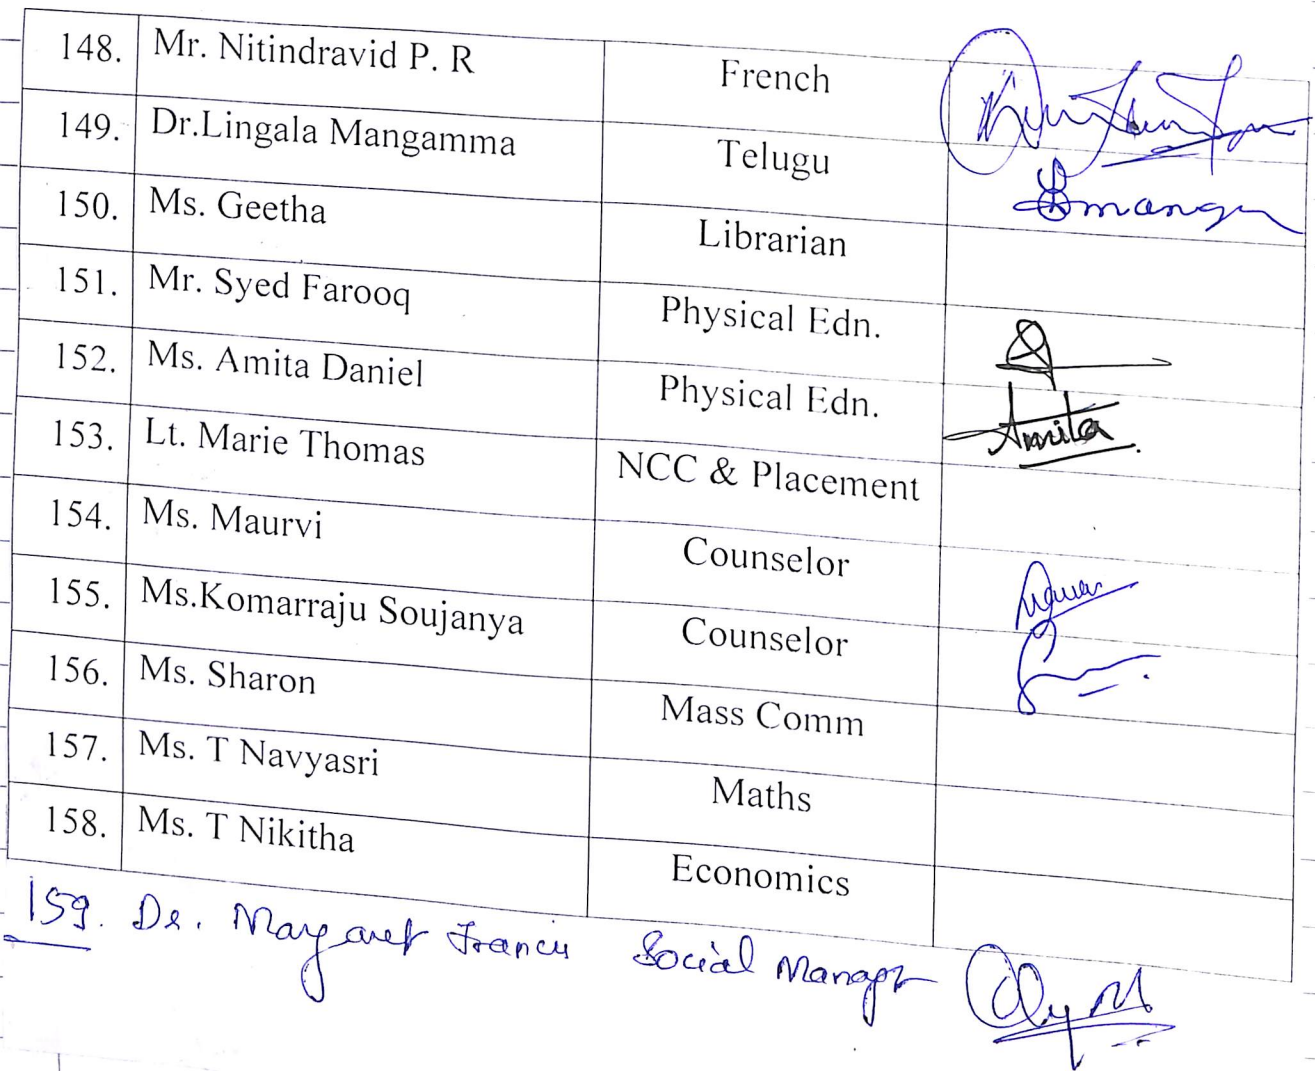 148. Mr. Nitindravid P. R French
149. Dr.Lingala Mangamma Telugu
150. Ms. Geetha Librarian
151. Mr. Syed Farooq Physical Edn.
152. Ms. Amita Daniel Physical Edn. Amita
153. Lt. Marie Thomas NCC & Placement
154. Ms. Maurvi Counselor
155. Ms.Komarraju Soujanya Counselor
156. Ms. Sharon Mass Comm
157. Ms. T Navyasri Maths
158. Ms. T Nikitha Economics
159. Dr. Margaret Francis Social